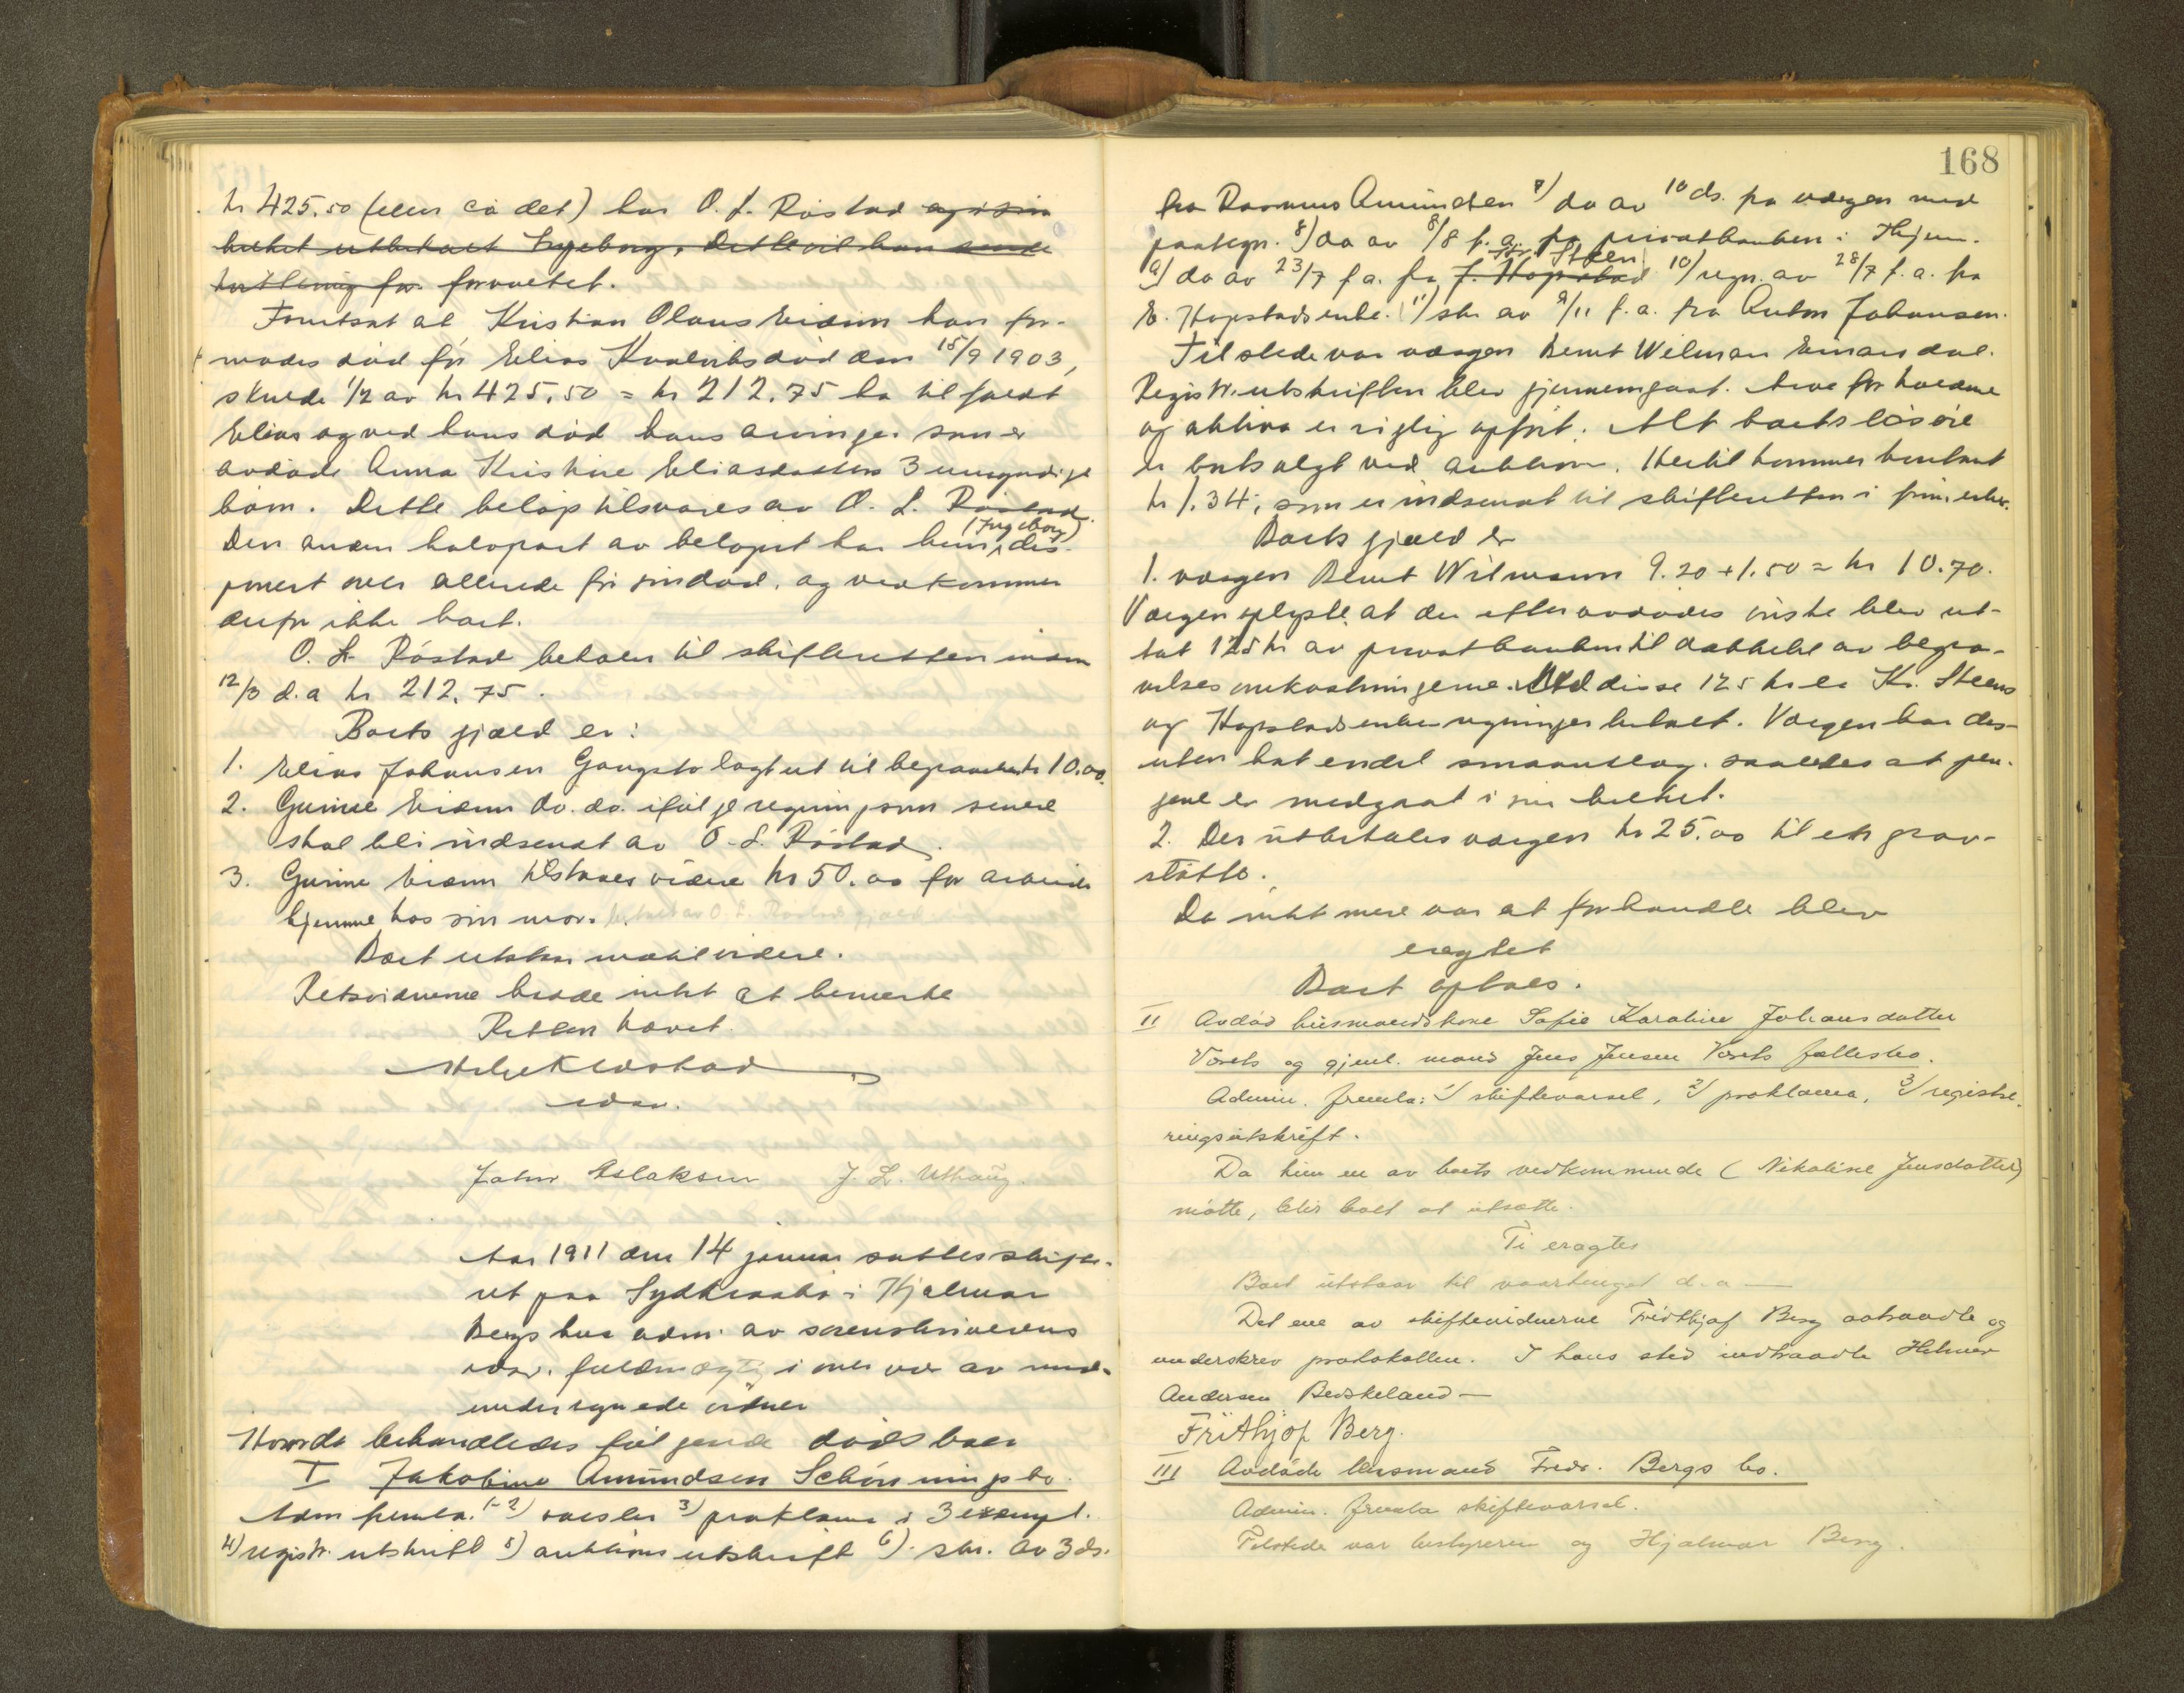 kr 425.50 (eller ca det) har O. L. Røstad og i sin
helhet utbetalt Ingeborg. Dette vil han sende
kvittering for forvaltet.
Forutsat at Kristian Olaus Eidem han for-
modes død før Elias Kvalviks død den 15/9 1903,
skulde 1/2 av kr 425,50 = kr 212.75 ha tilfaldt
Elias og ved hans død hans arvinger som er
avdøde Anna Kristine Eliasdatters 3 umyndige
børn. Dette beløp tilsvares av O. L. Røstad.
(Ingeborg)
Den anden halvpart av beløpet har hun dis-
poneret over allerede før sin død, og vedkommer
derfor ikke boet.
O. L. Røstad betaler til skifteretten inden
12/3 d.a kr 212.75.
Boets gjæld er:
1. Elias Johansen Gangstø lagt ut til begravelse kr 10.00
2. Gunne Eidem do. do. ifølge regning som senere
skal bli indsendt av O. L. Røstad.
3. Gunne Eidem tilstaaes videre kr 50.00 for arbeide
hjemme hos sin mor. betalt av O. L. Røstads gjæld.
Boet utstaar indtil videre.
Retsvidnerne hadde intet at bemerke
Retten hævet.
edsv.
John Aslaksen J. L. Uthaug.
Aar 1911 den 14 januar sattes skifte-
ret paa Sydkraakø i Hjalmar
Bergs hus adm. av sorenskriverens
edsv. fuldmægtig i overvær av med-
undertegnede vidner
Hvorda behandledes følgende dødsboer
I Jakobine Amundsen Schönnings bo.
Adm fremla. 1-2) varsler 3) proklama i 3 exempl.
4) registr. utskrift 5) auktions utskrift 6) skr. av 3 ds.
168
fra Rasmus Amundsen 7) do av 10 ds. fra værgen med
paategn. 8) do av 8/8 f.a. fra privatbanken i Thjem.
Kr. Steen
9) do av 23/7 f a. fra J. Hopstad 10) regn. av 28/7 f.a. fra
E. Hopstads enke. 11) skr av 9/11 f.a. fra Anton Johansen.
Tilstede var værgen Bernt Wilman Einarsdal.
Registr.utskriften blev gjennemgaat. Arveforholdene
og aktiva er rigtig opført. Alt boets løsøre
er bortsolgt ved auktion. Hertil kommer kontant
kr 1.34, som er indsendt til skifteretten i frimerker.
Boets gjæld er
1. værgen Bernt Wilmann 9.20 + 1.50 = kr 10.70.
Værgen oplyste at der efter avdødes ønske blev ut-
tat 125 kr av privatbanken til dækkelse av begra-
velsesomkostningerne. Med disse 125 kr er Kr. Steens
og Hopstads enkes regninger betalt. Værgen har des-
uten hat endel smaautlæg. saaledes at pen-
gene er medgaat i sin helhet.
2. Der utbetales værgen kr 25.00 til en grav-
støtte.
Da intet mere var at forhandle blev
eragtet
Boet optaes.
II Avdød husmandskone Sofie Karoline Johansdatter
Vorets og gjenl. mand Jens Jensen Vorets fællesbo.
Admin. fremla: 1/ skiftevarsel, 2/ proklama, 3/ registre-
ringsutskrift.
Da kun en av boets vedkommende (Nikoline Jensdatter)
møtte, blir boet at utsætte.
Ti eragtes
Boet utstaar til vaartinget d. a —
Det ene av skiftevidnerne Fridthjof Berg avtraadte og
underskrev protokollen. I hans sted indtraadte Helmer
Andersen Beskeland —
Frithjof Berg.
III Avdøde husmand Fredr. Bergs bo.
Admin. fremla skiftevarsel.
Tilstede var bestyreren og Hjalmar Berg.